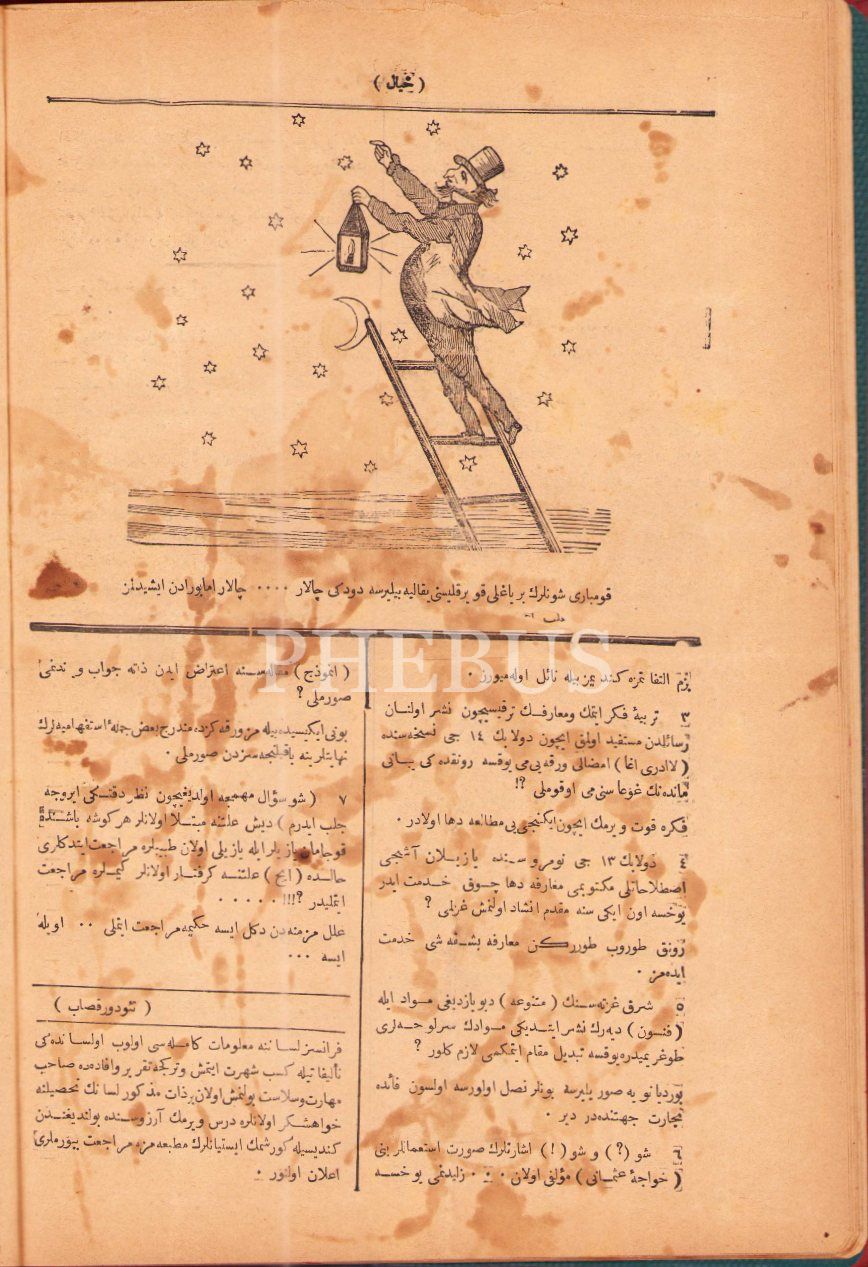 ( خيال )
قومبارى شونلرك بر ياغلى قويرقليسنى يقاليه بيليرسه دودكى چالار ٠٠٠٠ چالار اما بورادن ايشيدلمز
PHEBUS
بزم التفاتمزه كنديمز بيله نائل اوله ميورز ٠
٣ تربيهٔ فكر ايتمك ومعارفك ترقيسيچون نشر اولنان
رسائلدن مستفيد اولمق ايچون دولابك ١٤ جى نسخه سنده
( لاادرى اغا ) امضالى ورقه يى مى يوقسه رونقده كى
مائده نك غوغاسنى مى اوقوملى ؟!
فكره قوت ويرمك ايچون ايكنجى يى مطالعه دها اولادر ٠
٤ دولابك ١٣ جى نومروسنده يازيلان آشيجى
اصطلاحاتلى مكتوبمى معارفه دها چوق خدمت ايدر
يوخسه اون ايكى سنه مقدم انشاد اولنمش غزلمى ؟
رونق طوروب طورركن معارفه بشقه شى خدمت
ايده مز ٠
٥ شرق غزته سنك ( متنوعه ) ديو يازديغى مواد ايله
( فنسون ) ديه رك نشر ايتديكى موادك سرلوحه لرى
طوغريميدره يوقسه تبديل مقام ايتمكمى لازم كلور ؟
بورديانويه صور يليرسه بونلر نصل اولورسه اولسون فائده
تجارت جهتنده در دير ٠
٦ شو (؟) و شو (!) اشارتلرك صورت استعماللرينى
( خواجهٔ عثمانى ) مؤلفى اولان ٠٠٠ زليدنمى يوخسه
( انموذج ) مقاله سنه اعتراض ايدن ذاته جواب ويرندنمى
صورملى ؟
بونى ايكيسيده بيله مز ورقه كزده مندرج بعض جملهٔ استفهاميه لرك
نهايتلرينه باقلنجه سزدن صورملى ٠
٧ ( شو سؤال مهمه اولديغيچون نظر دقتكى ايروجه
جلب ايدرم ) ديش علتنه مبتلا اولانلر هر كوشه باشنده
قوجامان يازيلر ايله يازيلى اولان طبيبلره مراجعت ايتدكلرى
حالده ( ايح ) علتنه كرفتار اولانلر كيملره مراجعت
ايتمليدر ؟!!! ٠٠٠٠٠
علل مزمنه دن دكل ايسه حكيمه مراجعت ايتملى ٠٠ اويله
ايسه ٠٠٠
( تئودور قصاب )
فرانسز لساننه معلومات كامله سى اولوب اولسانده كى
تأليفاتيله كسب شهرت ايتمش وتركجه تقرير وافاده ده صاحب
مهارت وسلاست بولنمش اولان بر ذات مذكور لسانك تحصيلنه
خواهشكر اولانلره درس ويرمك آرزوسنده بولنديغندن
كنديسيله كورشمك ايستيانلرك مطبعه مزه مراجعت بيورملرى
اعلان اولنور ٠